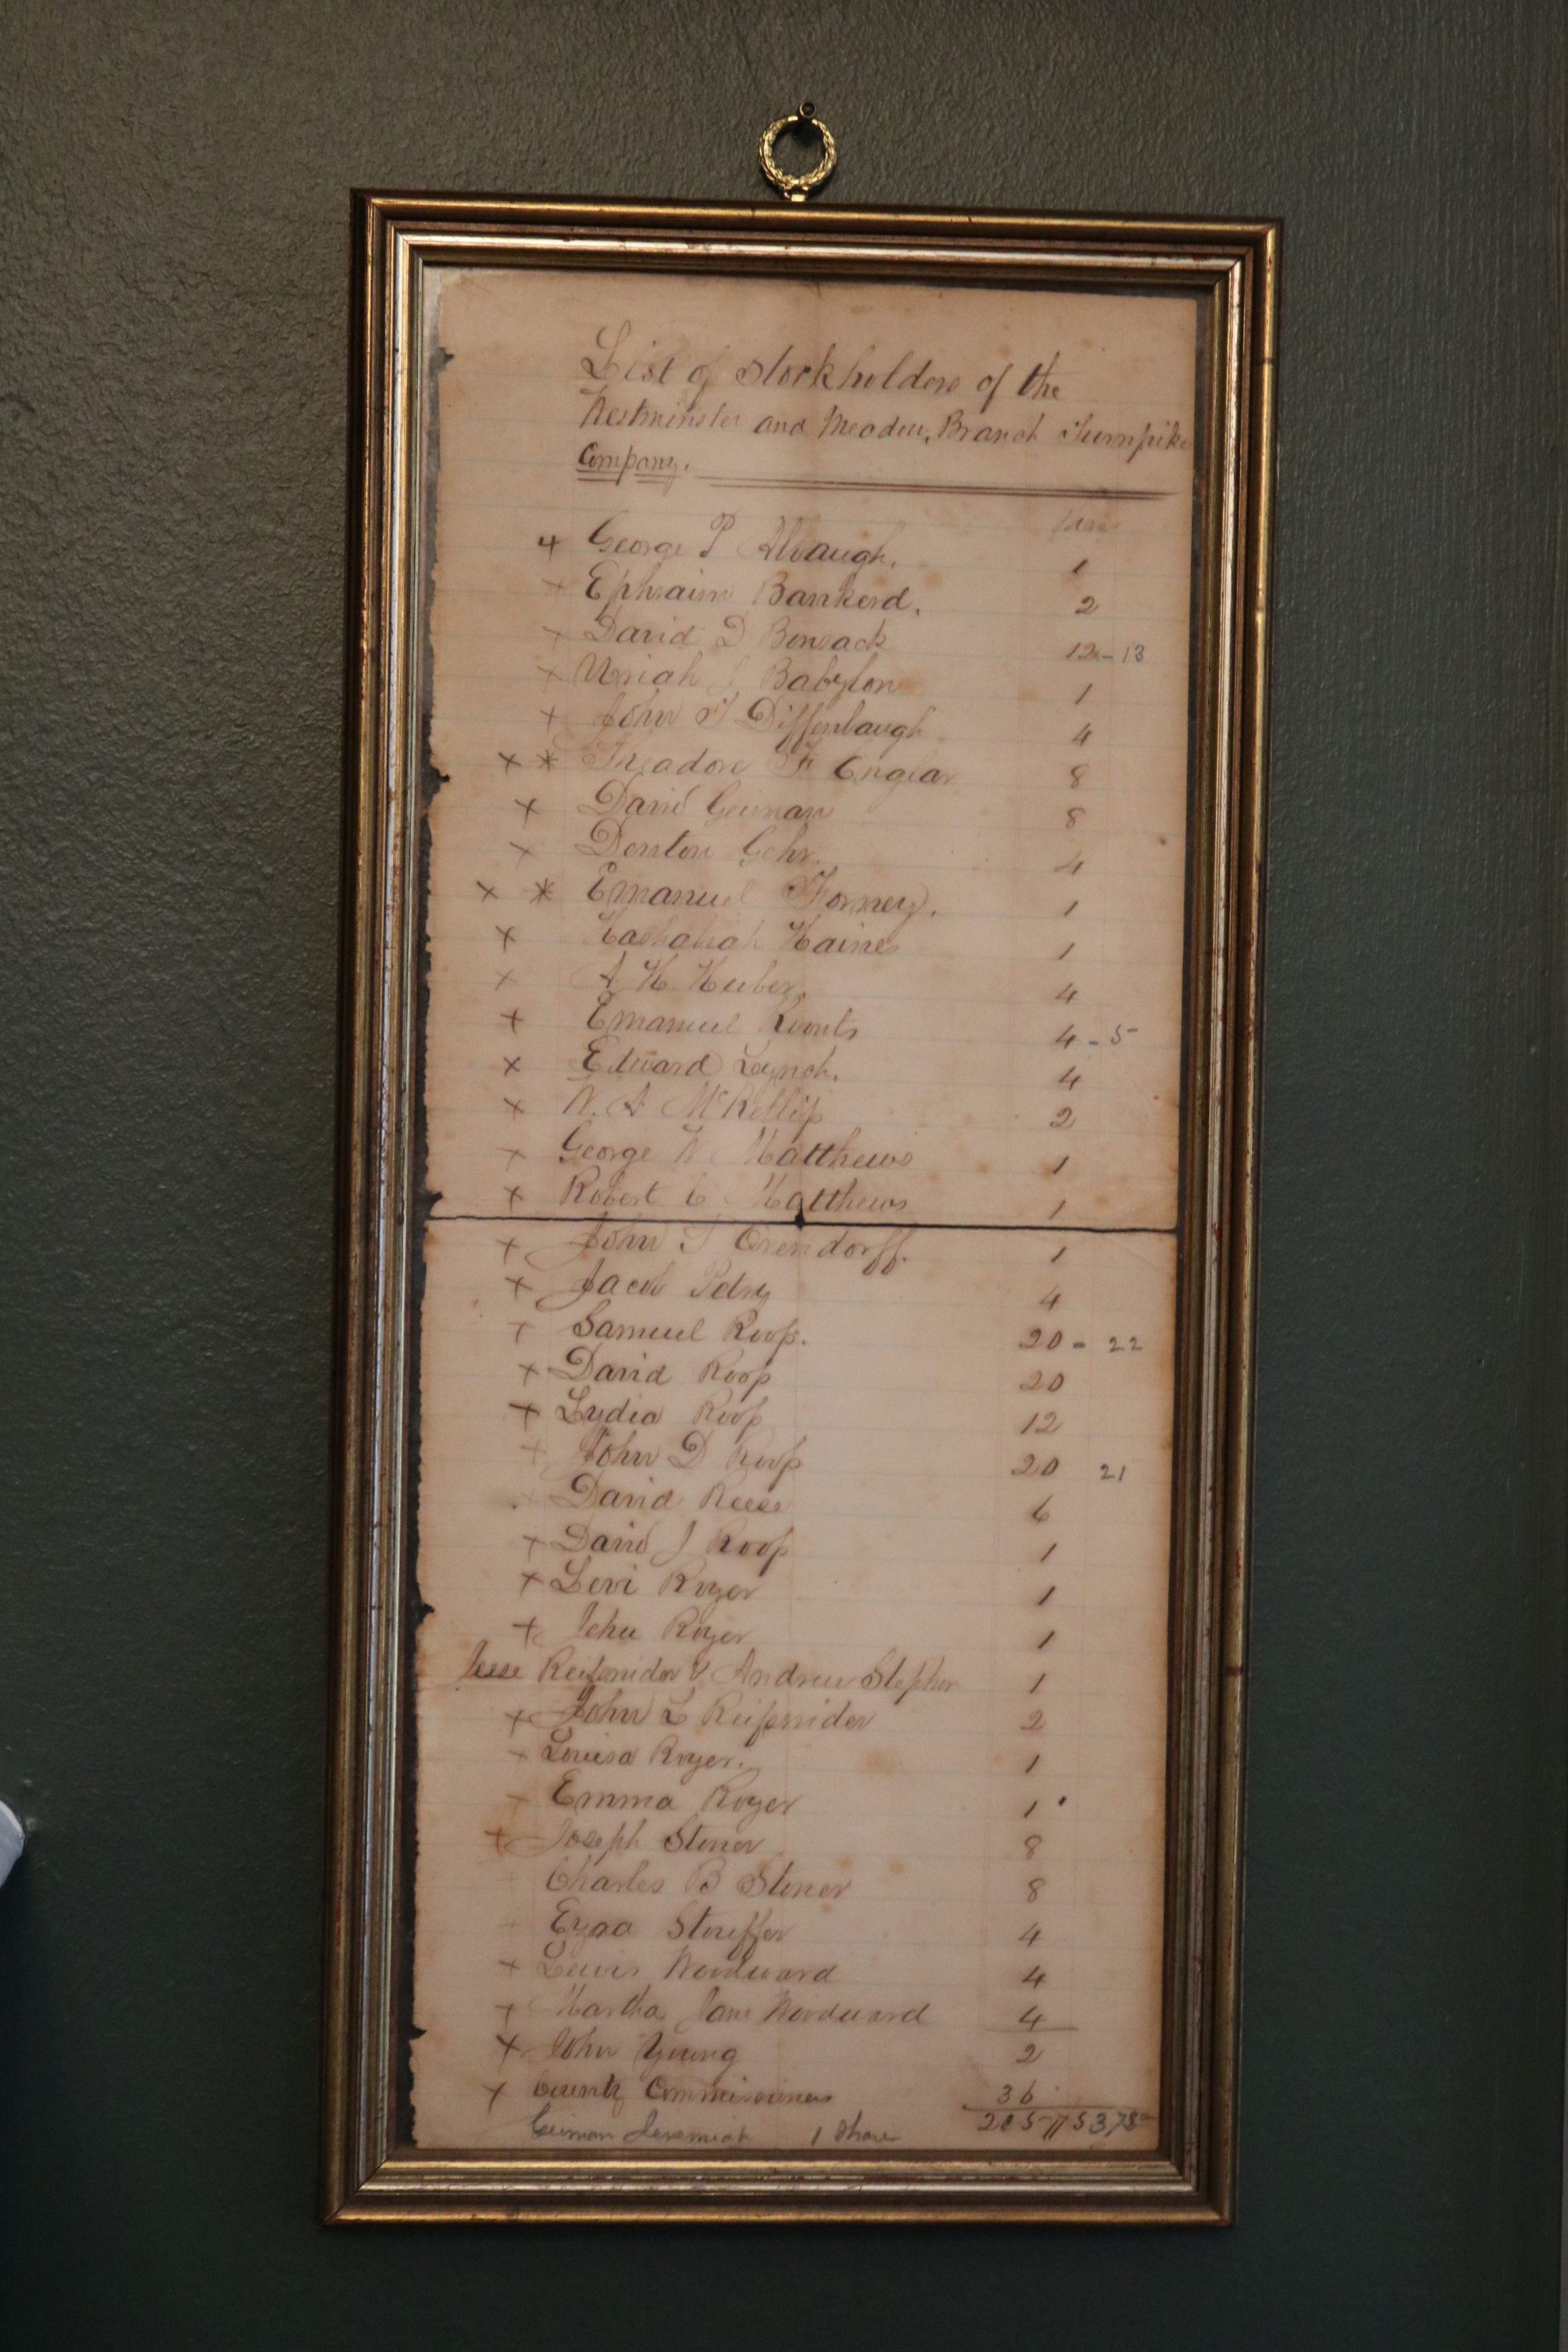 List of Stockholders of the
Westminster and Meadow, Branch Turnpike
Company.
George P Albaugh. 1
Ephraim Bankerd. 2
David D Bonsack 12-13
Uriah J Babylon 1
John T Diffenbaugh 4
Theadore F Englar 8
David Geiman 8
Denton Gehr. 4
Emanuel Formey. 1
Hashabiah Haines 1
A H. Huber. 4
Emanuel Koonts 4-5
Edward Lynch. 4
W. A McKellip 2
George W Matthews 1
Robert C Matthews 1
John T Orendorff. 1
Jacob Petry 4
Samuel Roop. 20-22
David Roop 20
Lydia Roop 12
John D Roop 20 21
David Reese 6
David J Roop 1
Levi Royer 1
Jehu Royer 1
Jesse Reifsnider & Andrew Stephen 1
John L Reifsnider 2
Louisa Royer. 1
Emma Royer 1
Joseph Stoner 8
Charles B Stoner 8
Ezra Stouffer 4
Lewis Woodward 4
Martha Jane Woodward 4
John Young 2
County Commissioners 36
Geiman Jeremiah 1 Share 205